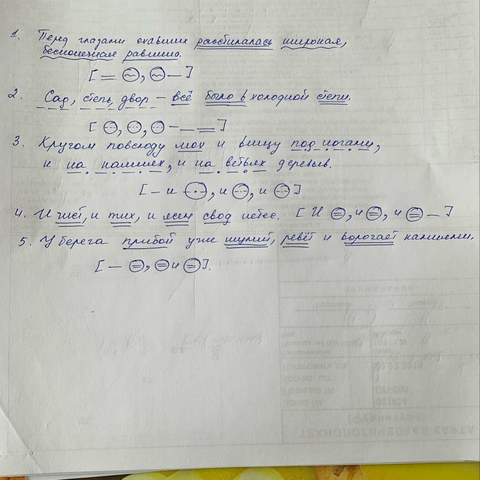 1. Перед глазами ехавших расстилалась широкая,
бесконечная равнина.
[ = ○, ○ – ]
2. Сад, степь, двор – всё было в холодной степи.
[ ○, ○, ○ – – = ]
3. Кругом повсюду мох и внизу под ногами,
и на камнях, и на ветвях деревьев.
[ – и ○, и ○, и ○ ]
4. И чист, и тих, и ясен свод небес. [ И ○, и ○, и ○ – ]
5. У берега прибой уже шумит, ревёт и ворочает камнями.
[ – ○, ○ и ○ ].